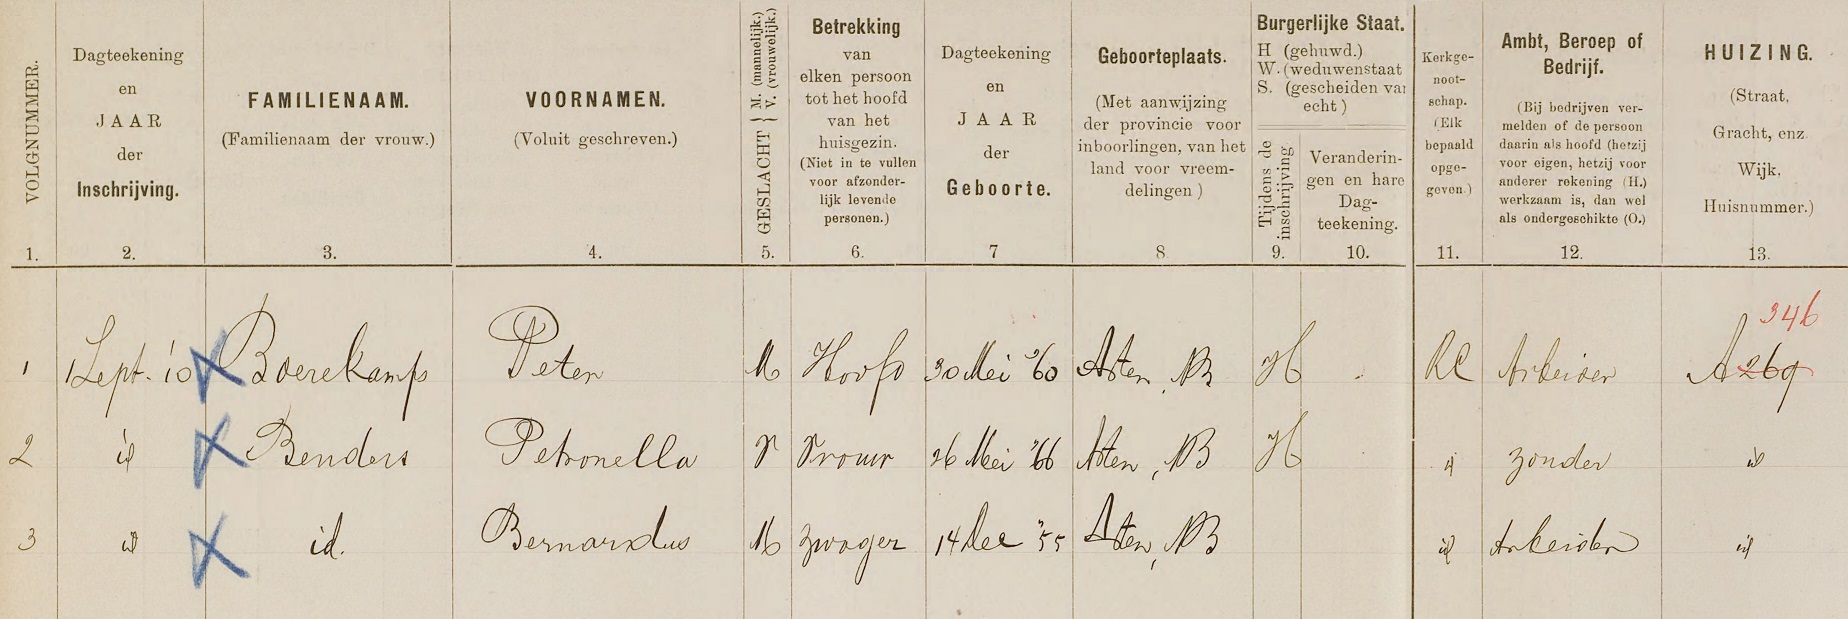 VOLGNUMMER.
1.
Dagteekening
en
JAAR
der
Inschrijving.
2.
FAMILIENAAM.
(Familienaam der vrouw.)
3.
VOORNAMEN.
(Voluit geschreven.)
4.
GESLACHT { M. (mannelijk.) V. (vrouwelijk.)
5.
Betrekking
van
elken persoon
tot het hoofd
van het
huisgezin.
(Niet in te vullen
voor afzonder-
lijk levende
personen.)
6.
Dagteekening
en
JAAR
der
Geboorte.
7
Geboorteplaats.
(Met aanwijzing
der provincie voor
inboorlingen, van het
land voor vreem-
delingen)
8
Burgerlijke Staat.
H (gehuwd.)
W. (weduwenstaat
S. (gescheiden van
echt)
Tijdens de
inschrijving
9.
Veranderin-
gen en hare
Dag-
teekening.
10.
Kerkge-
noot-
schap.
(Elk
bepaald
opge-
geven.)
11.
Ambt, Beroep of
Bedrijf.
(Bij bedrijven ver-
melden of de persoon
daarin als hoofd (hetzij
voor eigen, hetzij voor
anderer rekening (H.)
werkzaam is, dan wel
als ondergeschikte (O.)
12.
HUIZING.
(Straat,
Gracht, enz.
Wijk,
Huisnummer.)
13.
346
1 1 Sept. '10 Boerekamps Peter M Hoofd 30 Mei '60 Asten, NB H RC Arbeider A 269
2 id Benders Petronella V Vrouw 26 Mei '66 Asten, NB H id zonder id
3 id id. Bernardus M zwager 14 Dec '55 Asten, NB id Arbeider id